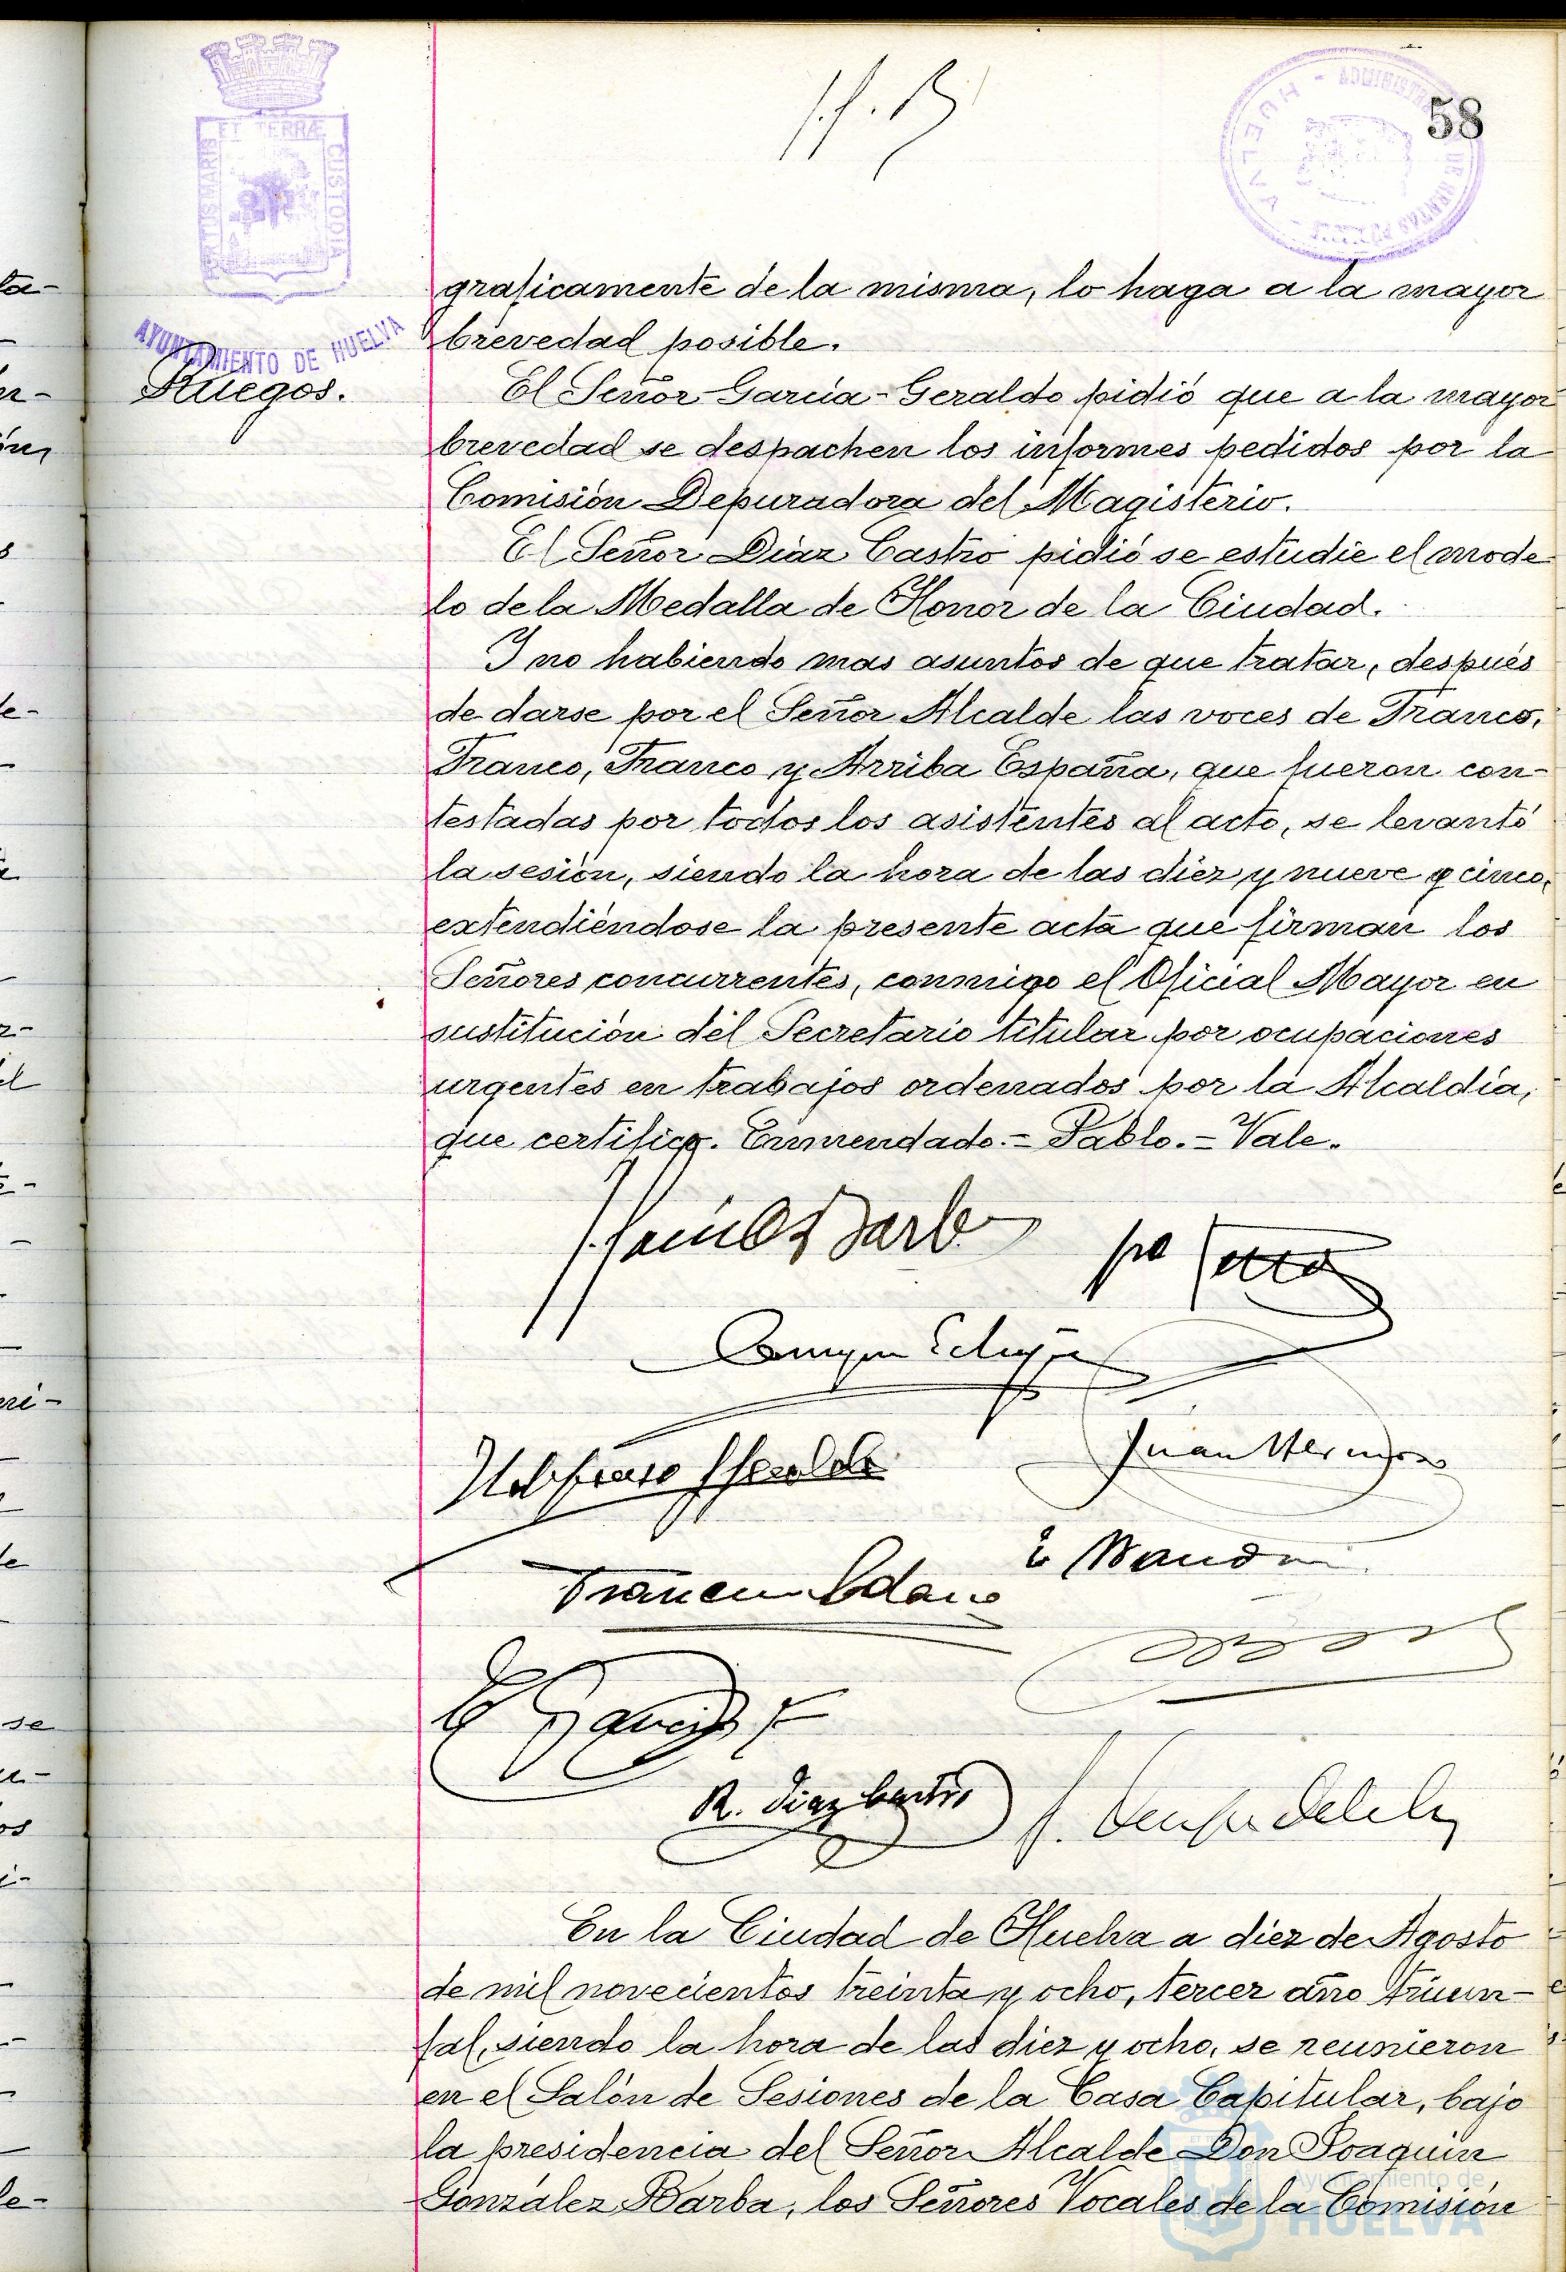 58
PORTUS MARIS ET TERRÆ CUSTODIA
AYUNTAMIENTO DE HUELVA
HUELVA
graficamente de la misma, lo haga a la mayor
brevedad posible.
Ruegos.
El Señor García-Geraldo pidió que a la mayor
brevedad se despachen los informes pedidos por la
Comisión Depuradora del Magisterio.
El Señor Díaz Castro pidió se estudie el mode-
lo de la Medalla de Honor de la Ciudad.
Y no habiendo mas asuntos de que tratar, después
de darse por el Señor Alcalde las voces de Franco,
Franco, Franco y Arriba España, que fueron con-
testadas por todos los asistentes al acto, se levantó
la sesión, siendo la hora de las diez y nueve y cinco,
extendiéndose la presente acta que firman los
Señores concurrentes, conmigo el Oficial Mayor en
sustitución del Secretario titular por ocupaciones
urgentes en trabajos ordenados por la Alcaldía,
que certifico. Enmendado.=Pablo.=Vale.
Barba
Juan
R. Diaz Castro
En la Ciudad de Huelva a diez de Agosto
de mil novecientos treinta y ocho, tercer año triun-
fal, siendo la hora de las diez y ocho, se reunieron
en el Salón de Sesiones de la Casa Capitular, bajo
la presidencia del Señor Alcalde Don Joaquín
González Barba, los Señores Vocales de la Comisión
Ayuntamiento de
HUELVA